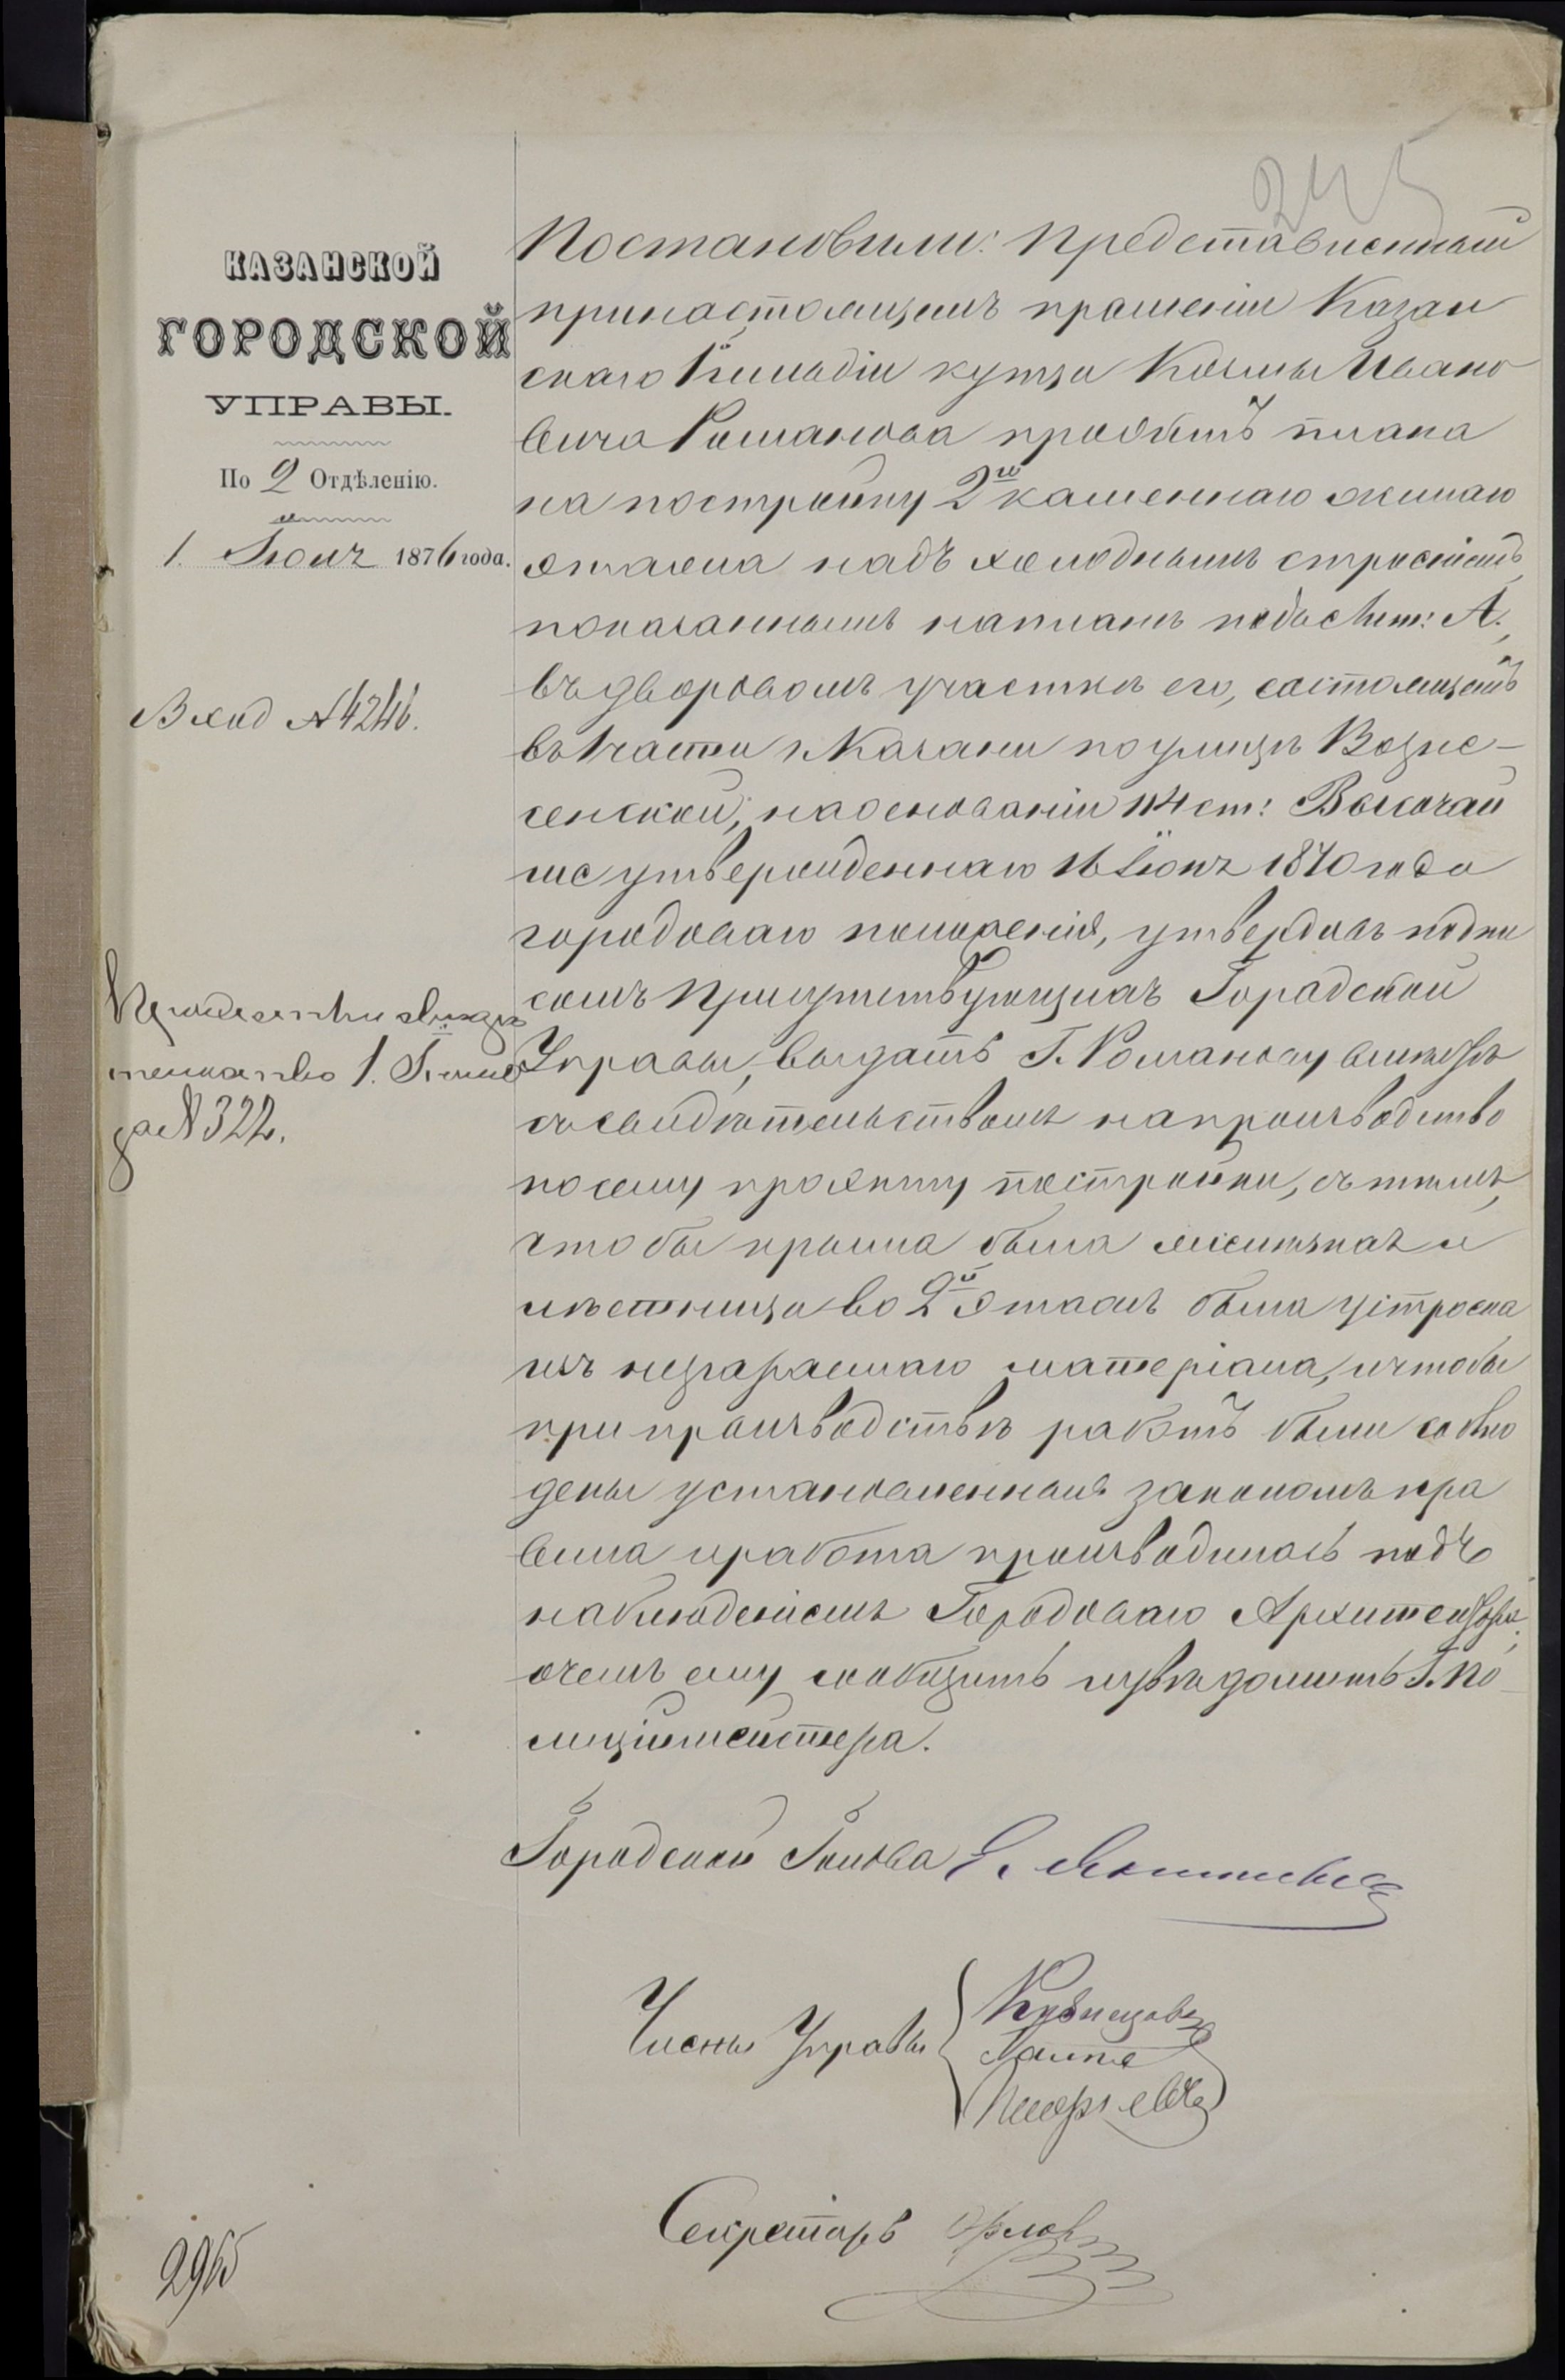 245
КАЗАНСКОЙ
ГОРОДСКОЙ
УПРАВЫ.
По 2 Отдѣленію.
1. Іюня 1876 года.
Вход № 4246.
тельство 1. Іюня
за № 322.
2965
Постановили: Представленный
при настоящемъ прошеніи Казан
скаго гильдіи купца Козьмы Ивано
вича Романова проэктъ плана
на постройку 2го каменнаго жилаго
этажа надъ холоднымъ строеніемъ,
показаннымъ на планѣ подъ лит: А.,
въ дворовомъ участкѣ его, состоящемъ
въ 1 части г. Казани по улицѣ Возне-
сенской, на основаніи 114 ст: Высочай
ше утвержденнаго 16 Іюня 1870 года
городоваго положенія, утвердивъ подпи
сомъ Присутствующихъ Городской
Управы, выдать Г. Романову вмѣстѣ
съ свидѣтельствомъ на производство
по сему проэкту постройки, съ тѣмъ,
чтобы крыша была желѣзная и
лѣстница во 2й этажъ была устроена
изъ несгараемаго матеріала, и чтобы
при производствѣ работъ были соблю
дены установленныя закономъ пра
вила и работа производилась подъ
наблюденіемъ Городоваго Архитектора;
о чемъ ему сообщить и увѣдомить Г. По-
лиціймейстера.
Городской Голова
Члены Управы
Кузнецовъ
Секретарь Орлов